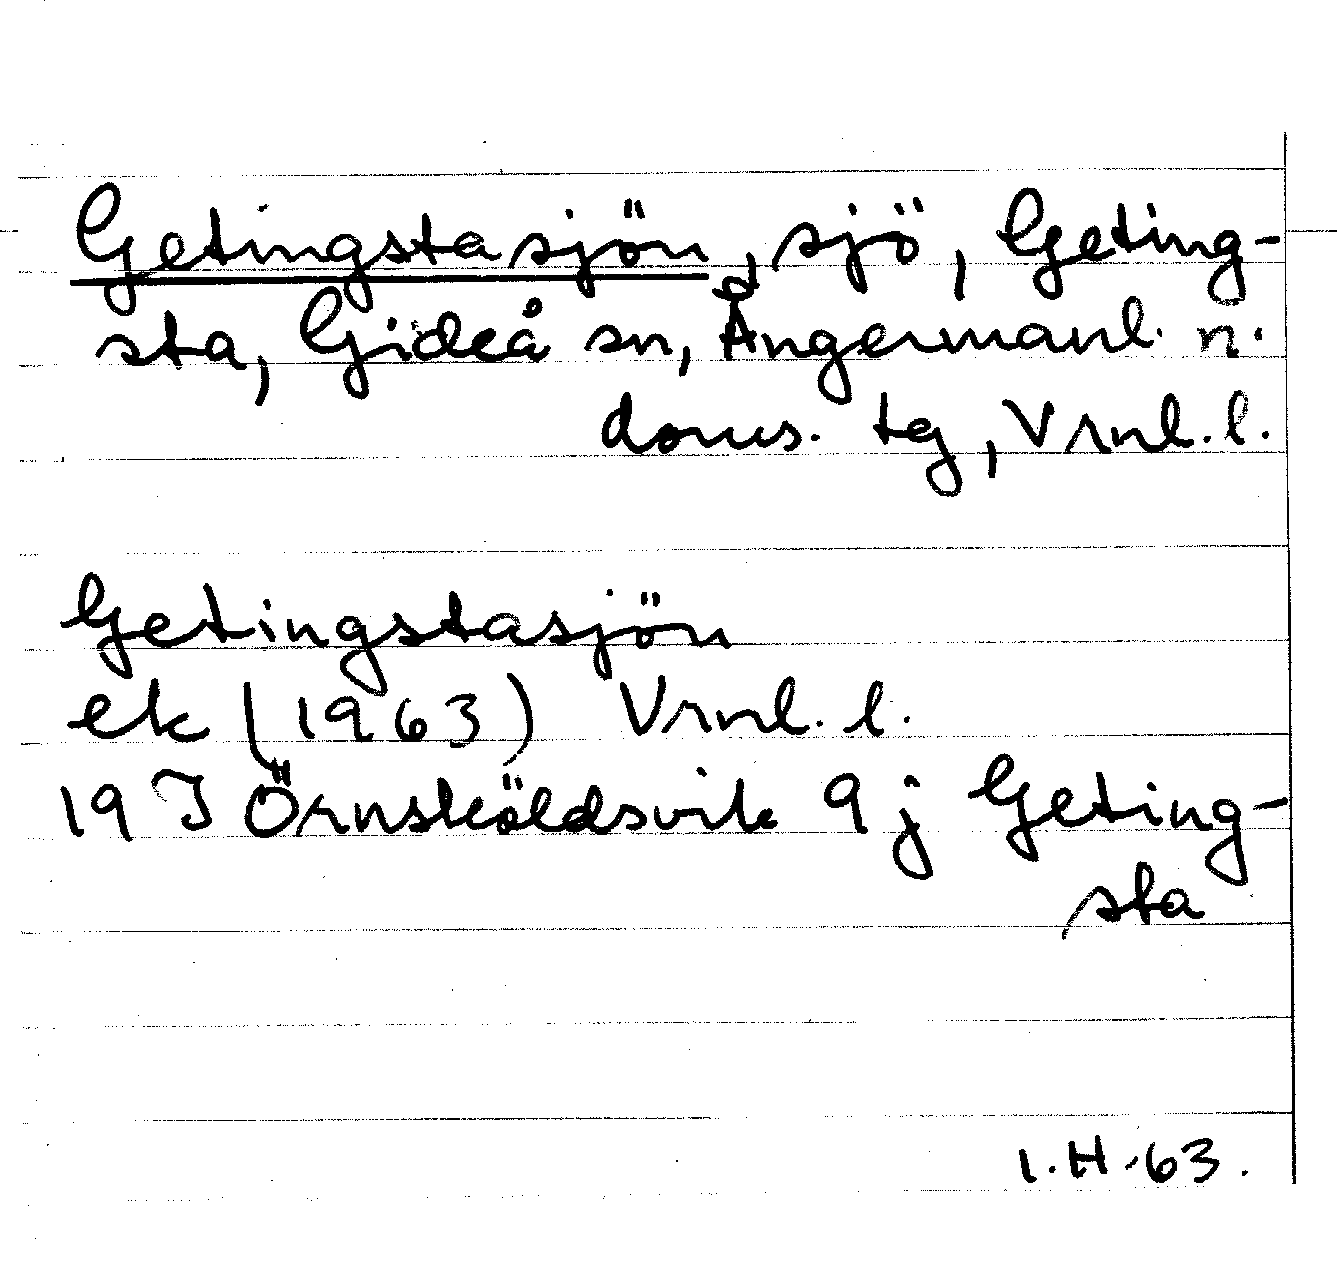 Getingstasjön, sjö, Geting-
sta, Gideå sn, Ångermanl. n.
doms. tg, Vrnl. l.
Getingstasjön
ek (1963) Vrnl. l.
19 J Örnsköldsvik 9 j Geting-
sta
I.H.-63.